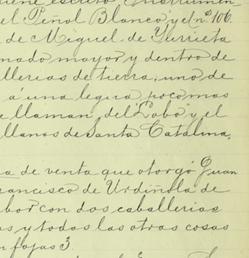 el Peñol Blanco, y el nº 106.
de Miguel de Yurrieta
mado mayor y dentro de
llerias de tierra, uno de
á una legua, poco mas
e llaman, del Lobo y el
llanos de Santa Catalina.
a de venta que otorgó Juan
rancisco de Urdiñola de
bor con dos caballerias
as y todas las otras cosas
n fojas 3.